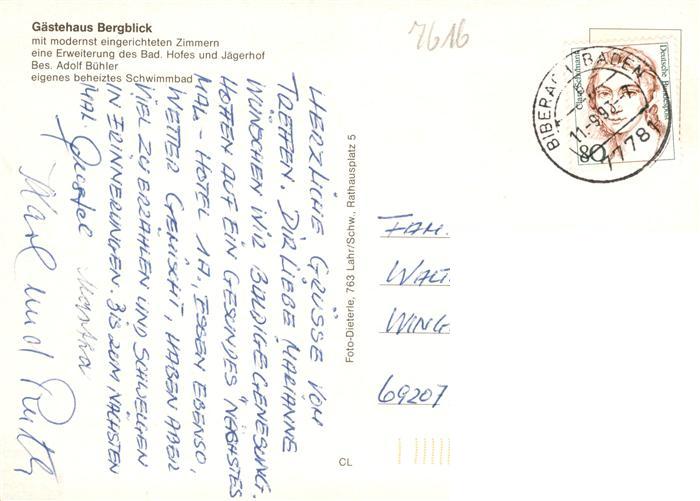 Gästehaus Bergblick
mit modernst eingerichteten Zimmern
eine Erweiterung des Bad. Hofes und Jägerhof
Bes. Adolf Bühler
eigenes beheiztes Schwimmbad
7616
HERZLICHE GRÜSSE VOM
TREFFEN. DIR LIEBE MARIANNE
WÜNSCHEN WIR BALDIGE GENESUNG.
HOFFEN AUF EIN GESUNDES NÄCHSTES
MAL - HOTEL 1A, ESSEN EBENSO,
WETTER GEMISCHT, HABEN ABER
VIEL ZU ERZÄHLEN UND SCHWELGEN
IN ERINNERUNGEN. BIS ZUM NÄCHSTEN
MAL. Gustel Martha
Karl und Ruth
Foto-Dieterle, 763 Lahr/Schw., Rathausplatz 5
CL
Deutsche Bundespost
80
BIBERACH, BADEN
11.-9.93
77781
FAM.
WALT.
WING
69207